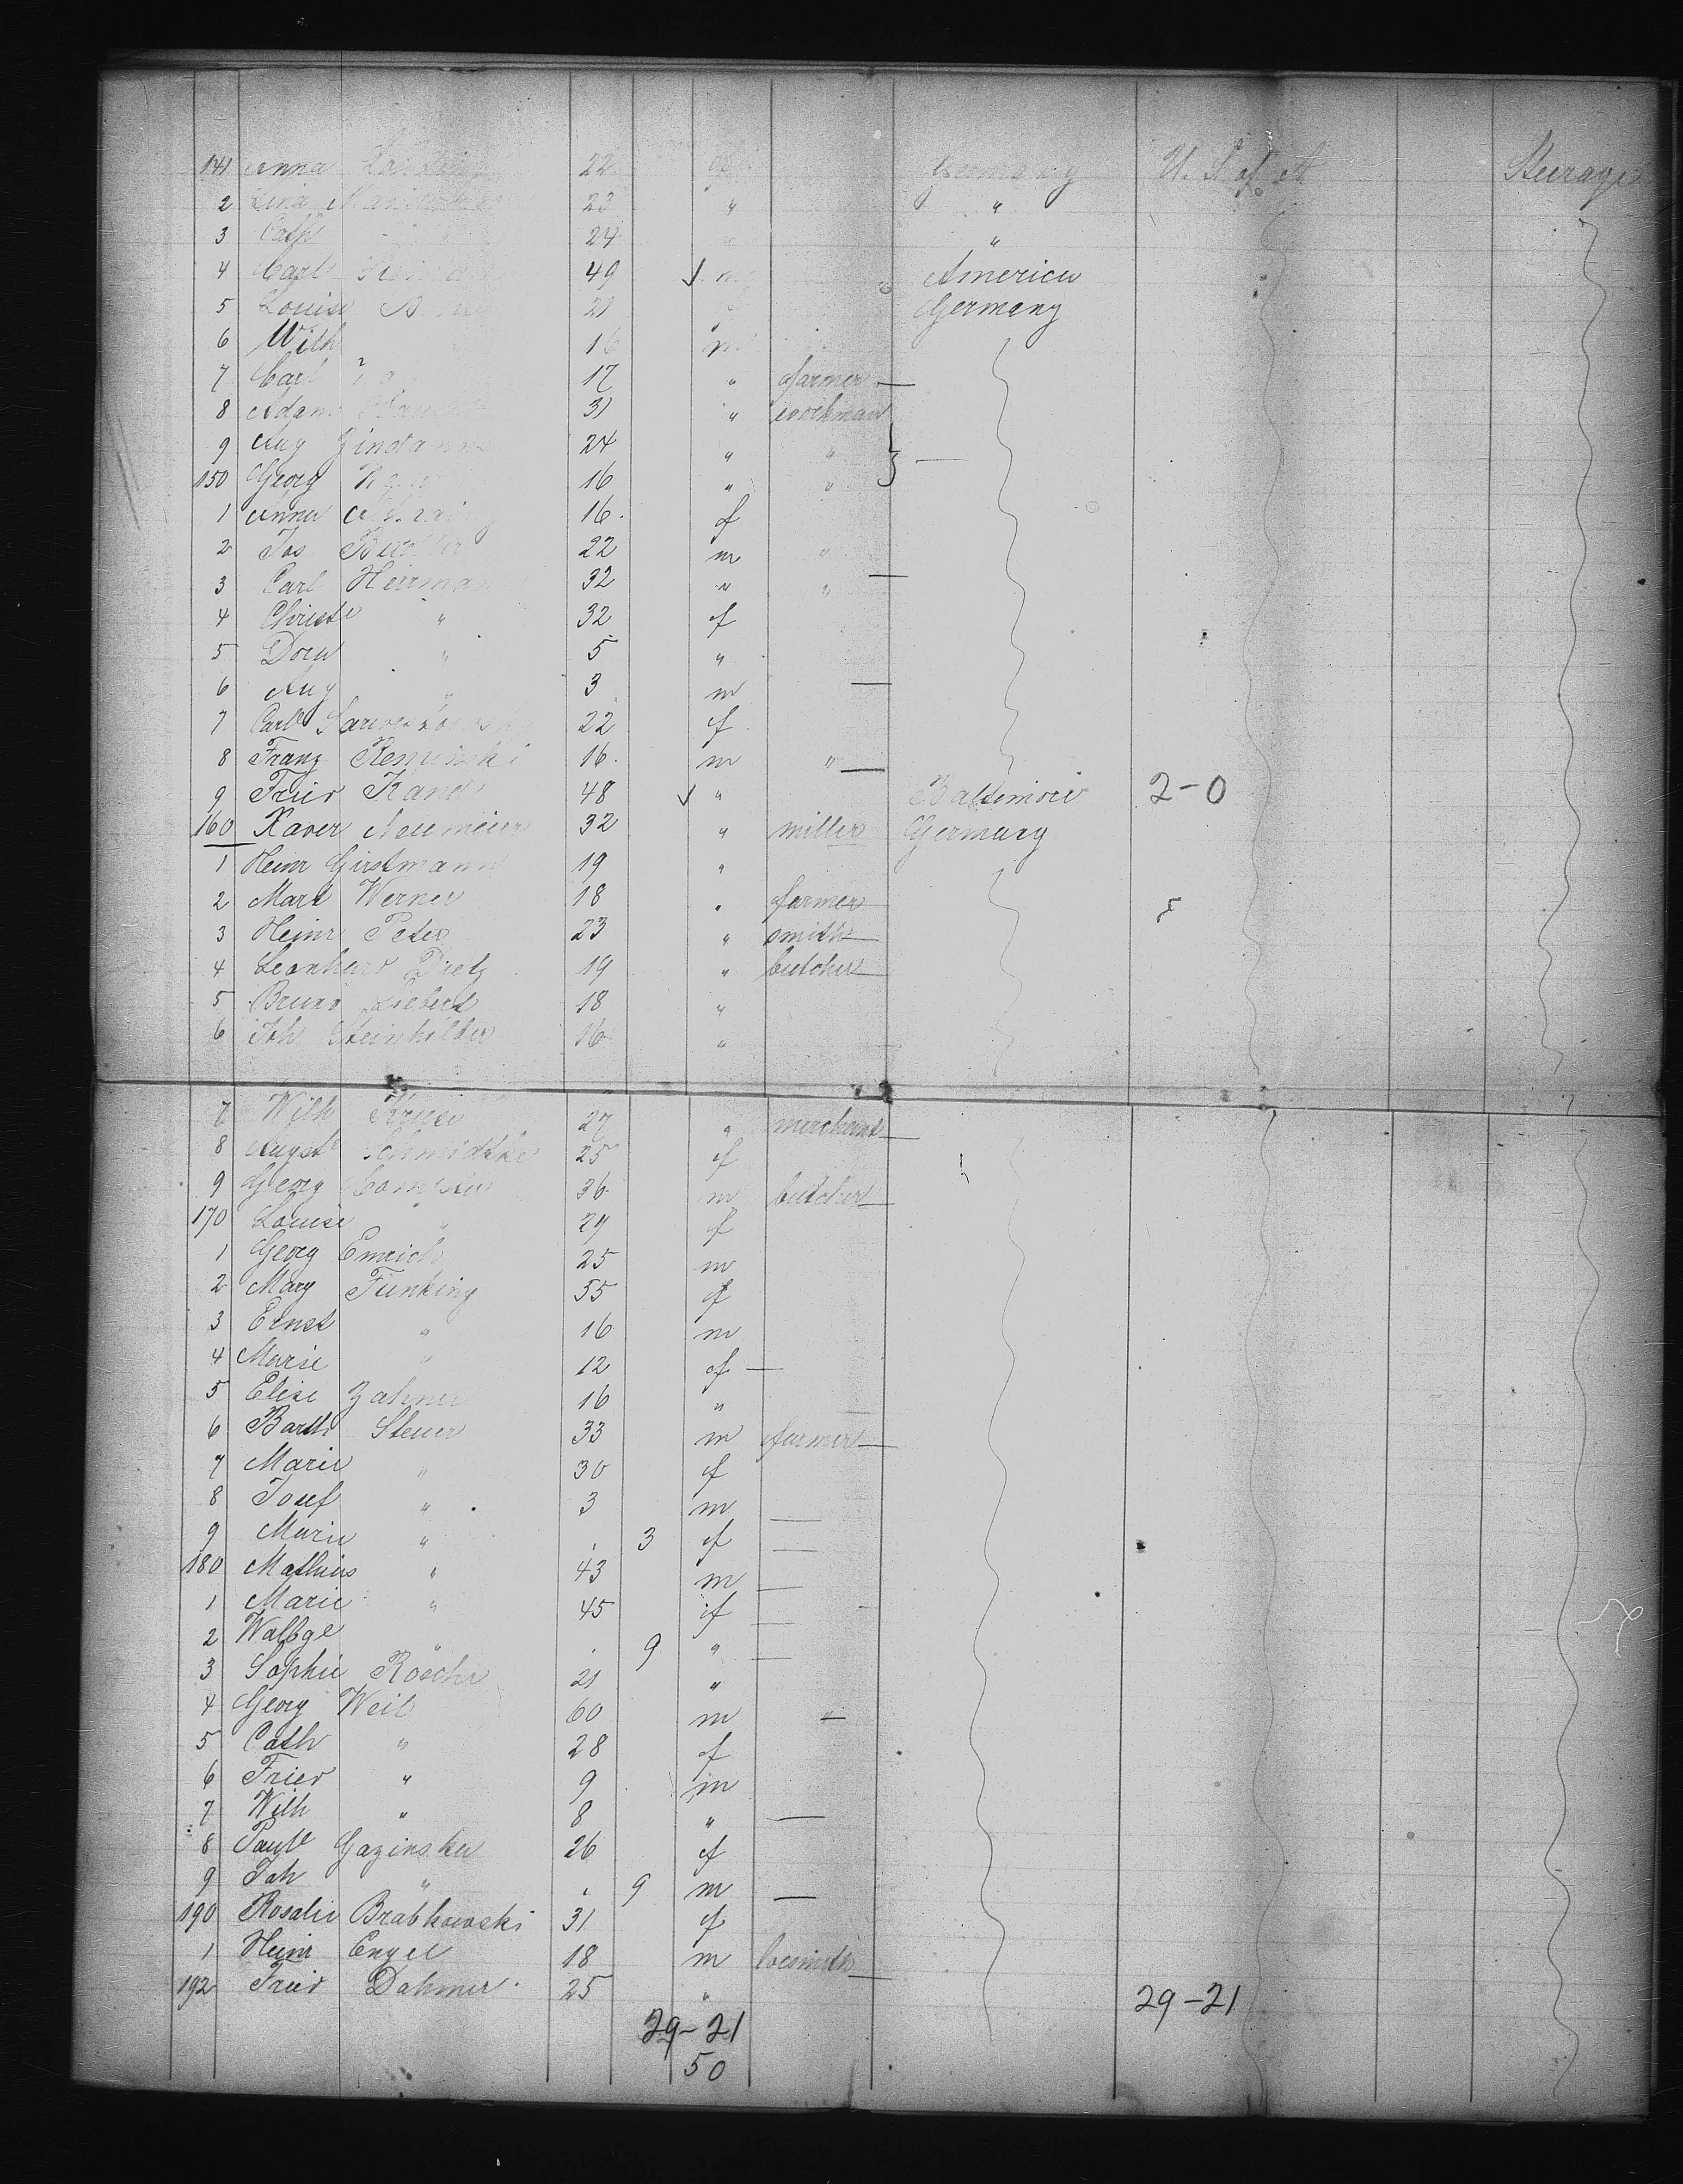 141 Anna 22 f Germany U. S. of A Steerage
2 Lina 23 " "
3 Cath 24 " "
4 Carl 49 ✓ m America
5 Louise 21 Germany
6 Wilh 16 m
7 Carl 17 " farmer —
8 Adam 31 " workman
9 Aug 24 " "
150 Georg 16 " "
1 Anna 16 f
2 Jos 22 m "
3 Carl Herrmann 32 " " —
4 Christe " 32 f
5 Dora " 5 "
6 Aug " 3 m —
7 Carle 22 f
8 Franz Reminski 16 m " —
9 Fried 48 ✓ " Baltimore 2-0
160 Xaver Neumeier 32 " miller Germany
1 Heinr Girstmann 19 "
2 Mart Werner 18 " farmer
3 Heinr Peter 23 " smith
4 Leonhard Dietz 19 " butcher
5 Bruno Liebert 18 "
6 Joh Steinhilber 16 "
7 Wilh Kruse 27 " merchant
8 Auguste Schmidtke 25 f
9 Georg 36 m butcher
170 Louise " 29 f
1 Georg Emrich 25 m
2 Mary Funking 55 f
3 Ernst " 16 m
4 Marie " 12 f —
5 Elise Zahner 16 "
6 Barth Steuer 33 m farmer
7 Marie " 30 f
8 Josef " 3 m —
9 Marie " . 3 f —
180 Mathias " 43 m —
1 Marie " 45 f —
2 Walbge " . 9 " —
3 Sophie Rosche 21 "
4 Georg Weil 60 m " —
5 Cath " 28 f
6 Fried " 9 m
7 Wilh " 8 " —
8 Paule Gazinska 26 f
9 Joh " . 9 m —
190 Rosalie Brabkowski 31 f
1 Heinr Engel 18 m locsmith
192 Fried Dahmer 25 "
29-21 29-21
50